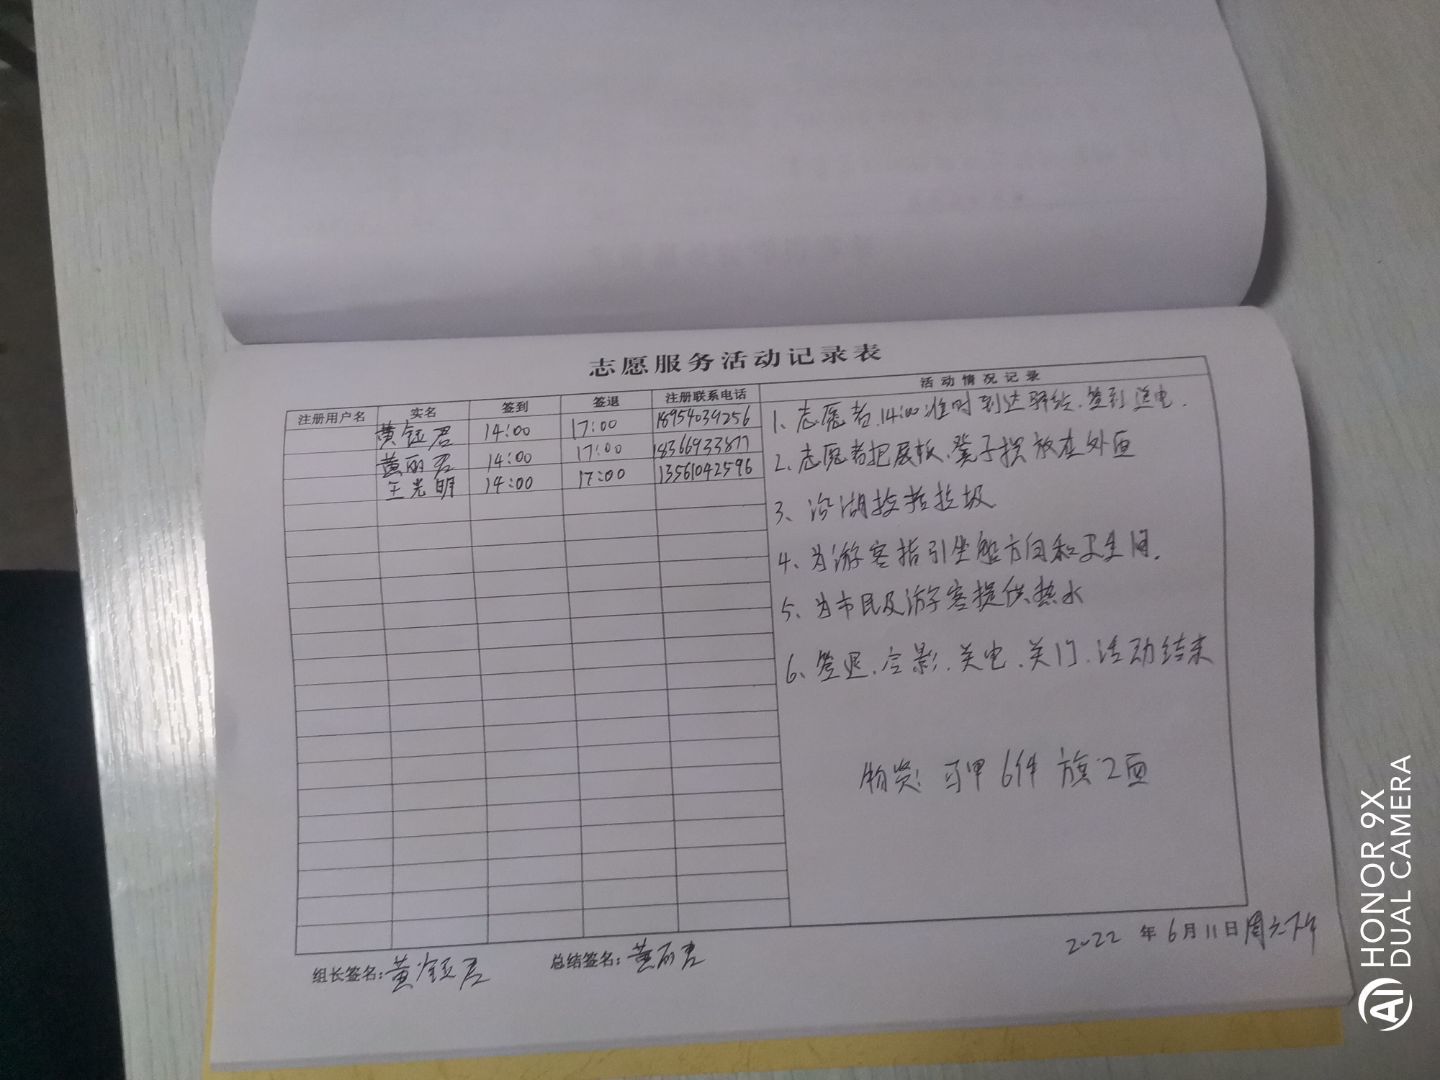 志愿服务活动记录表
注册用户名 实名 签到 签退 注册联系电话 活动情况记录
黄钰君 14:00 17:00 18954039256
黄丽君 14:00 17:00 18366933877
王光明 14:00 17:00 13561042596
1、志愿者14:00准时到达驿站、签到送电.
2、志愿者把展板、凳子摆放在外面
3、沿湖捡拾垃圾
4、为游客指引坐船方向和卫生间.
5、为市民及游客提供热水
6、签退、合影、关电、关门、活动结束
物资: 马甲6件 旗2面
组长签名:黄钰君 总结签名:黄丽君 2022年6月11日周六下午
HONOR 9X
AI DUAL CAMERA